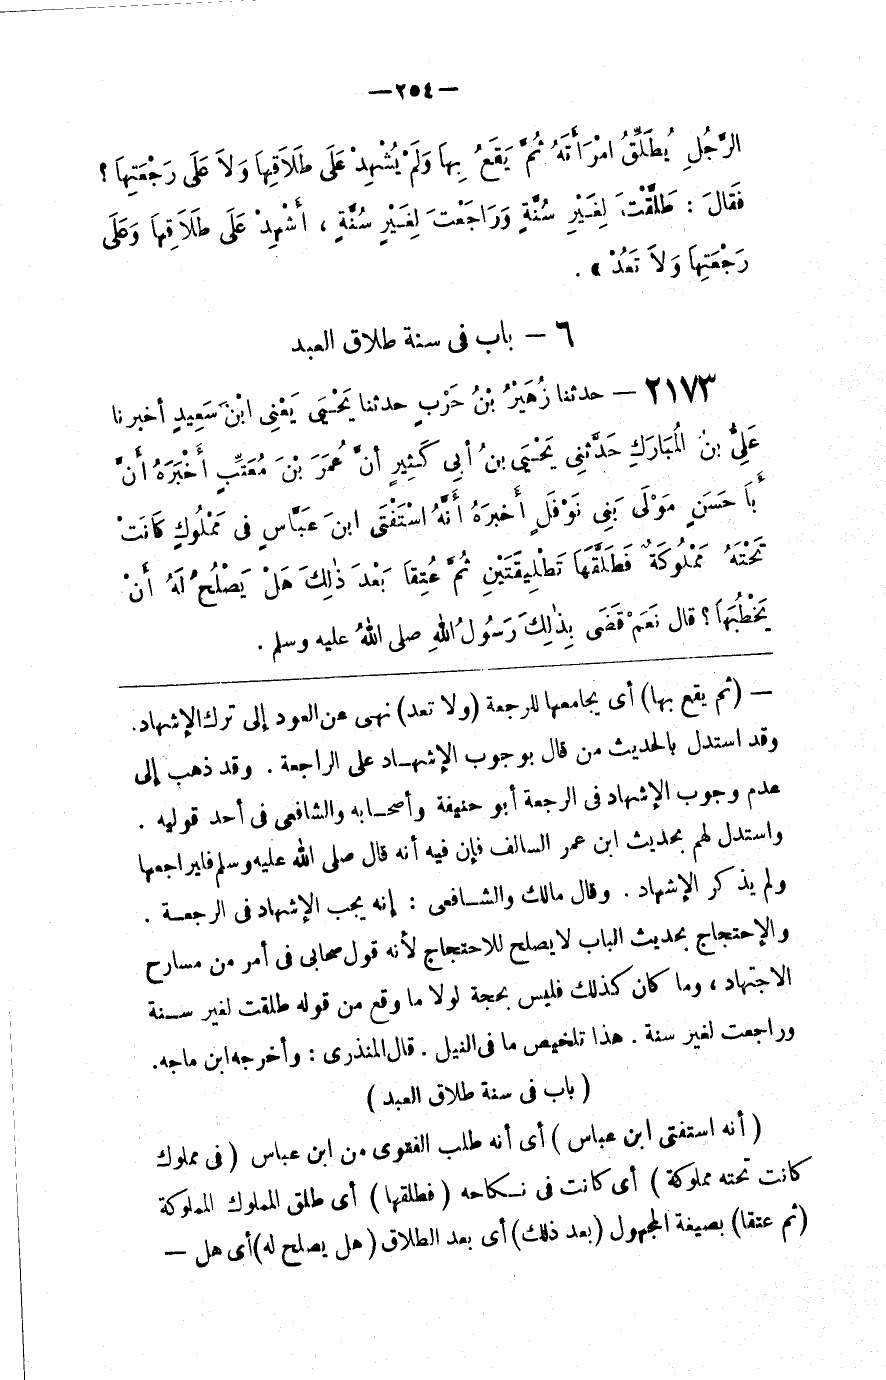 —٢٥٤—
الرَّجُلِ يُطَلِّقُ امْرَأَتَهُ ثُمَّ يَقَعُ بِهَا وَلَمْ يُشْهِدْ عَلَى طَلَاقِهَا وَلاَ عَلَى رَجْعَتِهَا ؟
فَقَالَ : طَلَّقْتَ لِغَيْرِ سُنَّةٍ وَرَاجَعْتَ لِغَيْرِ سُنَّةٍ ، أَشْهِدْ عَلَى طَلَاقِهَا وَعَلَى
رَجْعَتِهَا وَلاَ تَعُدْ » .
٦ – باب فى سنة طلاق العبد
٢١٧٣ – حدثنا زُهَيْرُ بْنُ حَرْبٍ حدثنا يَحْيَى يَعْنِى ابْنَ سَعِيدٍ أخبرنا
عَلِىُّ بنُ الْمُبَارَكِ حَدَّثَنِى يَحْيَى بنُ أَبِى كَثِيرٍ أنَّ عُمَرَ بْنَ مُعَتِّبٍ أَخْبَرَهُ أَنَّ
أَبَا حَسَنٍ مَوْلَى بَنِى نَوْفَلٍ أَخبرَهُ أَنَّهُ اسْتَفْتَى ابنَ عَبَّاسٍ فى مَمْلُوكٍ كَانَتْ
تَحْتَهُ مَمْلُوكَةٌ فَطَلَّقَهَا تَطْلِيقَتَيْنِ ثُمَّ عُتِقَا بَعْدَ ذٰلِكَ هَلْ يَصْلُحُ لَهُ أَنْ
يَخْطُبَهَا ؟ قال نَعَمْ قَضَى بِذٰلِكَ رَسُولُ اللهِ صلى اللهُ عليه وسلم .
— (ثم يقع بها) أى يجامعها للرجعة (ولا تعد) نهى عن العود إلى ترك الإشهاد.
وقد استدل بالحديث من قال بوجوب الإشهـاد على الراجعة . وقد ذهب إلى
عدم وجوب الإشهاد فى الرجعة أبو حنيفة وأصحـابه والشافعى فى أحد قوليه .
واستدل لهم بحديث ابن عمر السالف فإن فيه أنه قال صلى الله عليه وسلم فليراجعها
ولم يذكر الإشهاد . وقال مالك والشـافعى : إنه يجب الإشهاد فى الرجعـة .
والإحتجاج بحديث الباب لا يصلح للاحتجاج لأنه قول صحابى فى أمر من مسارح
الاجتهاد ، وما كان كذلك فليس بحجة لولا ما وقع من قوله طلقت لغير سـنة
وراجعت لغير سنة . هذا تلخيص ما فى النيل . قال المنذرى : وأخرجه ابن ماجه.
( باب فى سنة طلاق العبد )
( أنه استفتى ابن عباس ) أى أنه طلب الفقوى من ابن عباس ( فى مملوك
كانت تحته مملوكة ) أى كانت فى نـكاحه ( فطلقها ) أى طلق المملوك المملوكة
(ثم عتقا) بصيغة المجهول (بعد ذلك) أى بعد الطلاق ( هل يصلح له) أى هل —